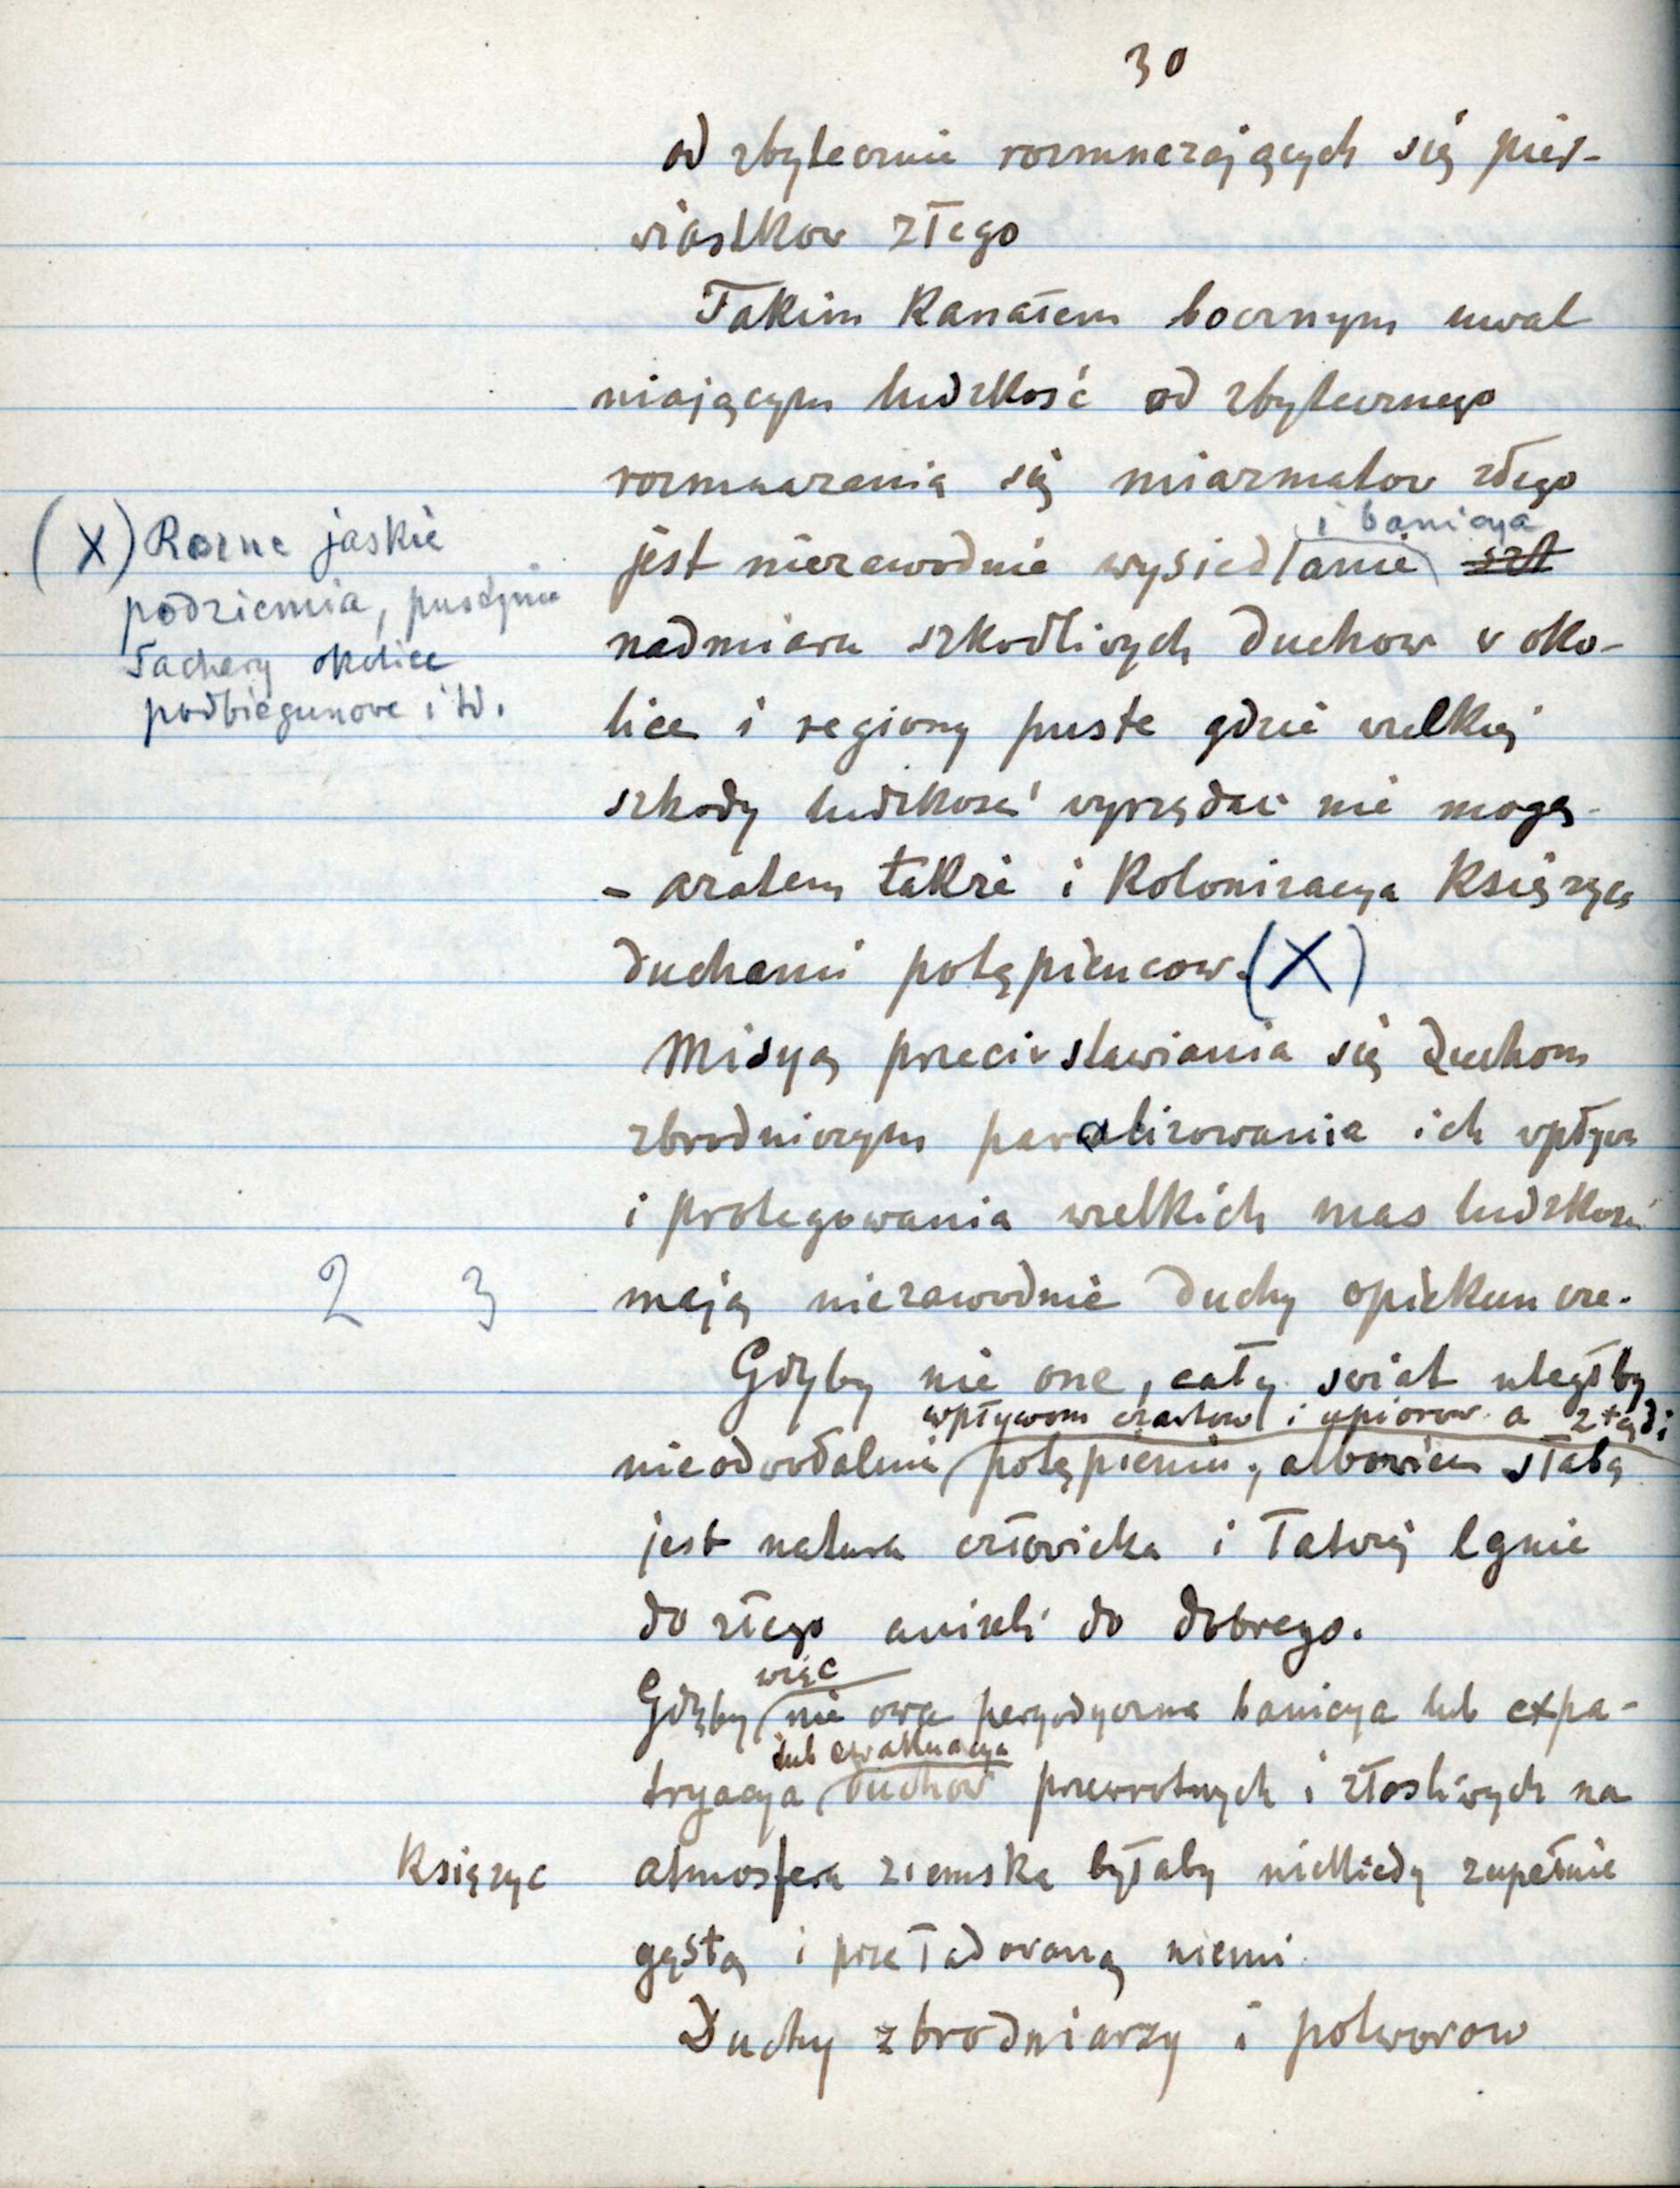 30
od zbytecznie rozmnarzających się pier-
wiastkow złego
Takim Kanałem bocznym uwal
niającym ludzkość od zbytecznego
rozmnarzania się miazmatow złego
i banicya
jest niezawodnie wysiedlanie szt
nadmiaru szkodliwych duchow w oko-
lice i regiony puste gdzie wielkiej
szkody ludzkosci wyrządzać nie mogą
- azatem także i Kolonizacya Księżyca
duchami potępiencow. (X)
(X) Rozne jaskie
podziemia, pustynie
okolice
podbiegunowe i td.
Misyą przeciwstawiania się duchom
zbrodniczym paralizowania ich wpływu
i protegowania wielkich mas ludzkosci
2 3
mają niezawodnie duchy opiekuncze.
Gdyby nie one, cały swiat uległby
wpływom czartow i upiorow a ztąd i
nieodwołalnie potępieniu; albowiem słabą
jest natura człowieka i łatwiej lgnie
do złego aniżeli do dobrego.
więc
Gdyby nie owa peryodyczna banicya lub expa-
lub ewakuacya
tryacya duchow przewrotnych i złosliwych na
Księżyc
atmosfera ziemska byłaby niekiedy zupełnie
gęstą i przeładowaną niemi.
Duchy zbrodniarzy i potworow